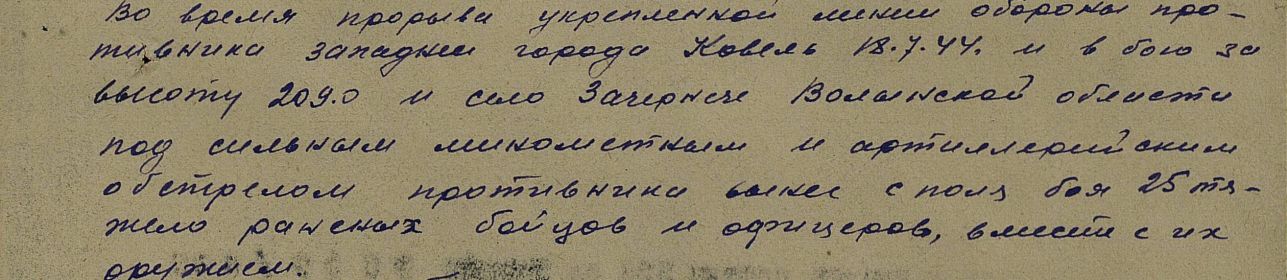 Во время прорыва укрепленной линии обороны про-
тивника западнее города Ковель 18.7.44. и в бою за
высоту 209.0 и село Зачернече Волынской области
под сильным минометным и артиллерийским
обстрелом противника вынес с поля боя 25 тя-
жело раненых бойцов и офицеров, вместе с их
оружием.